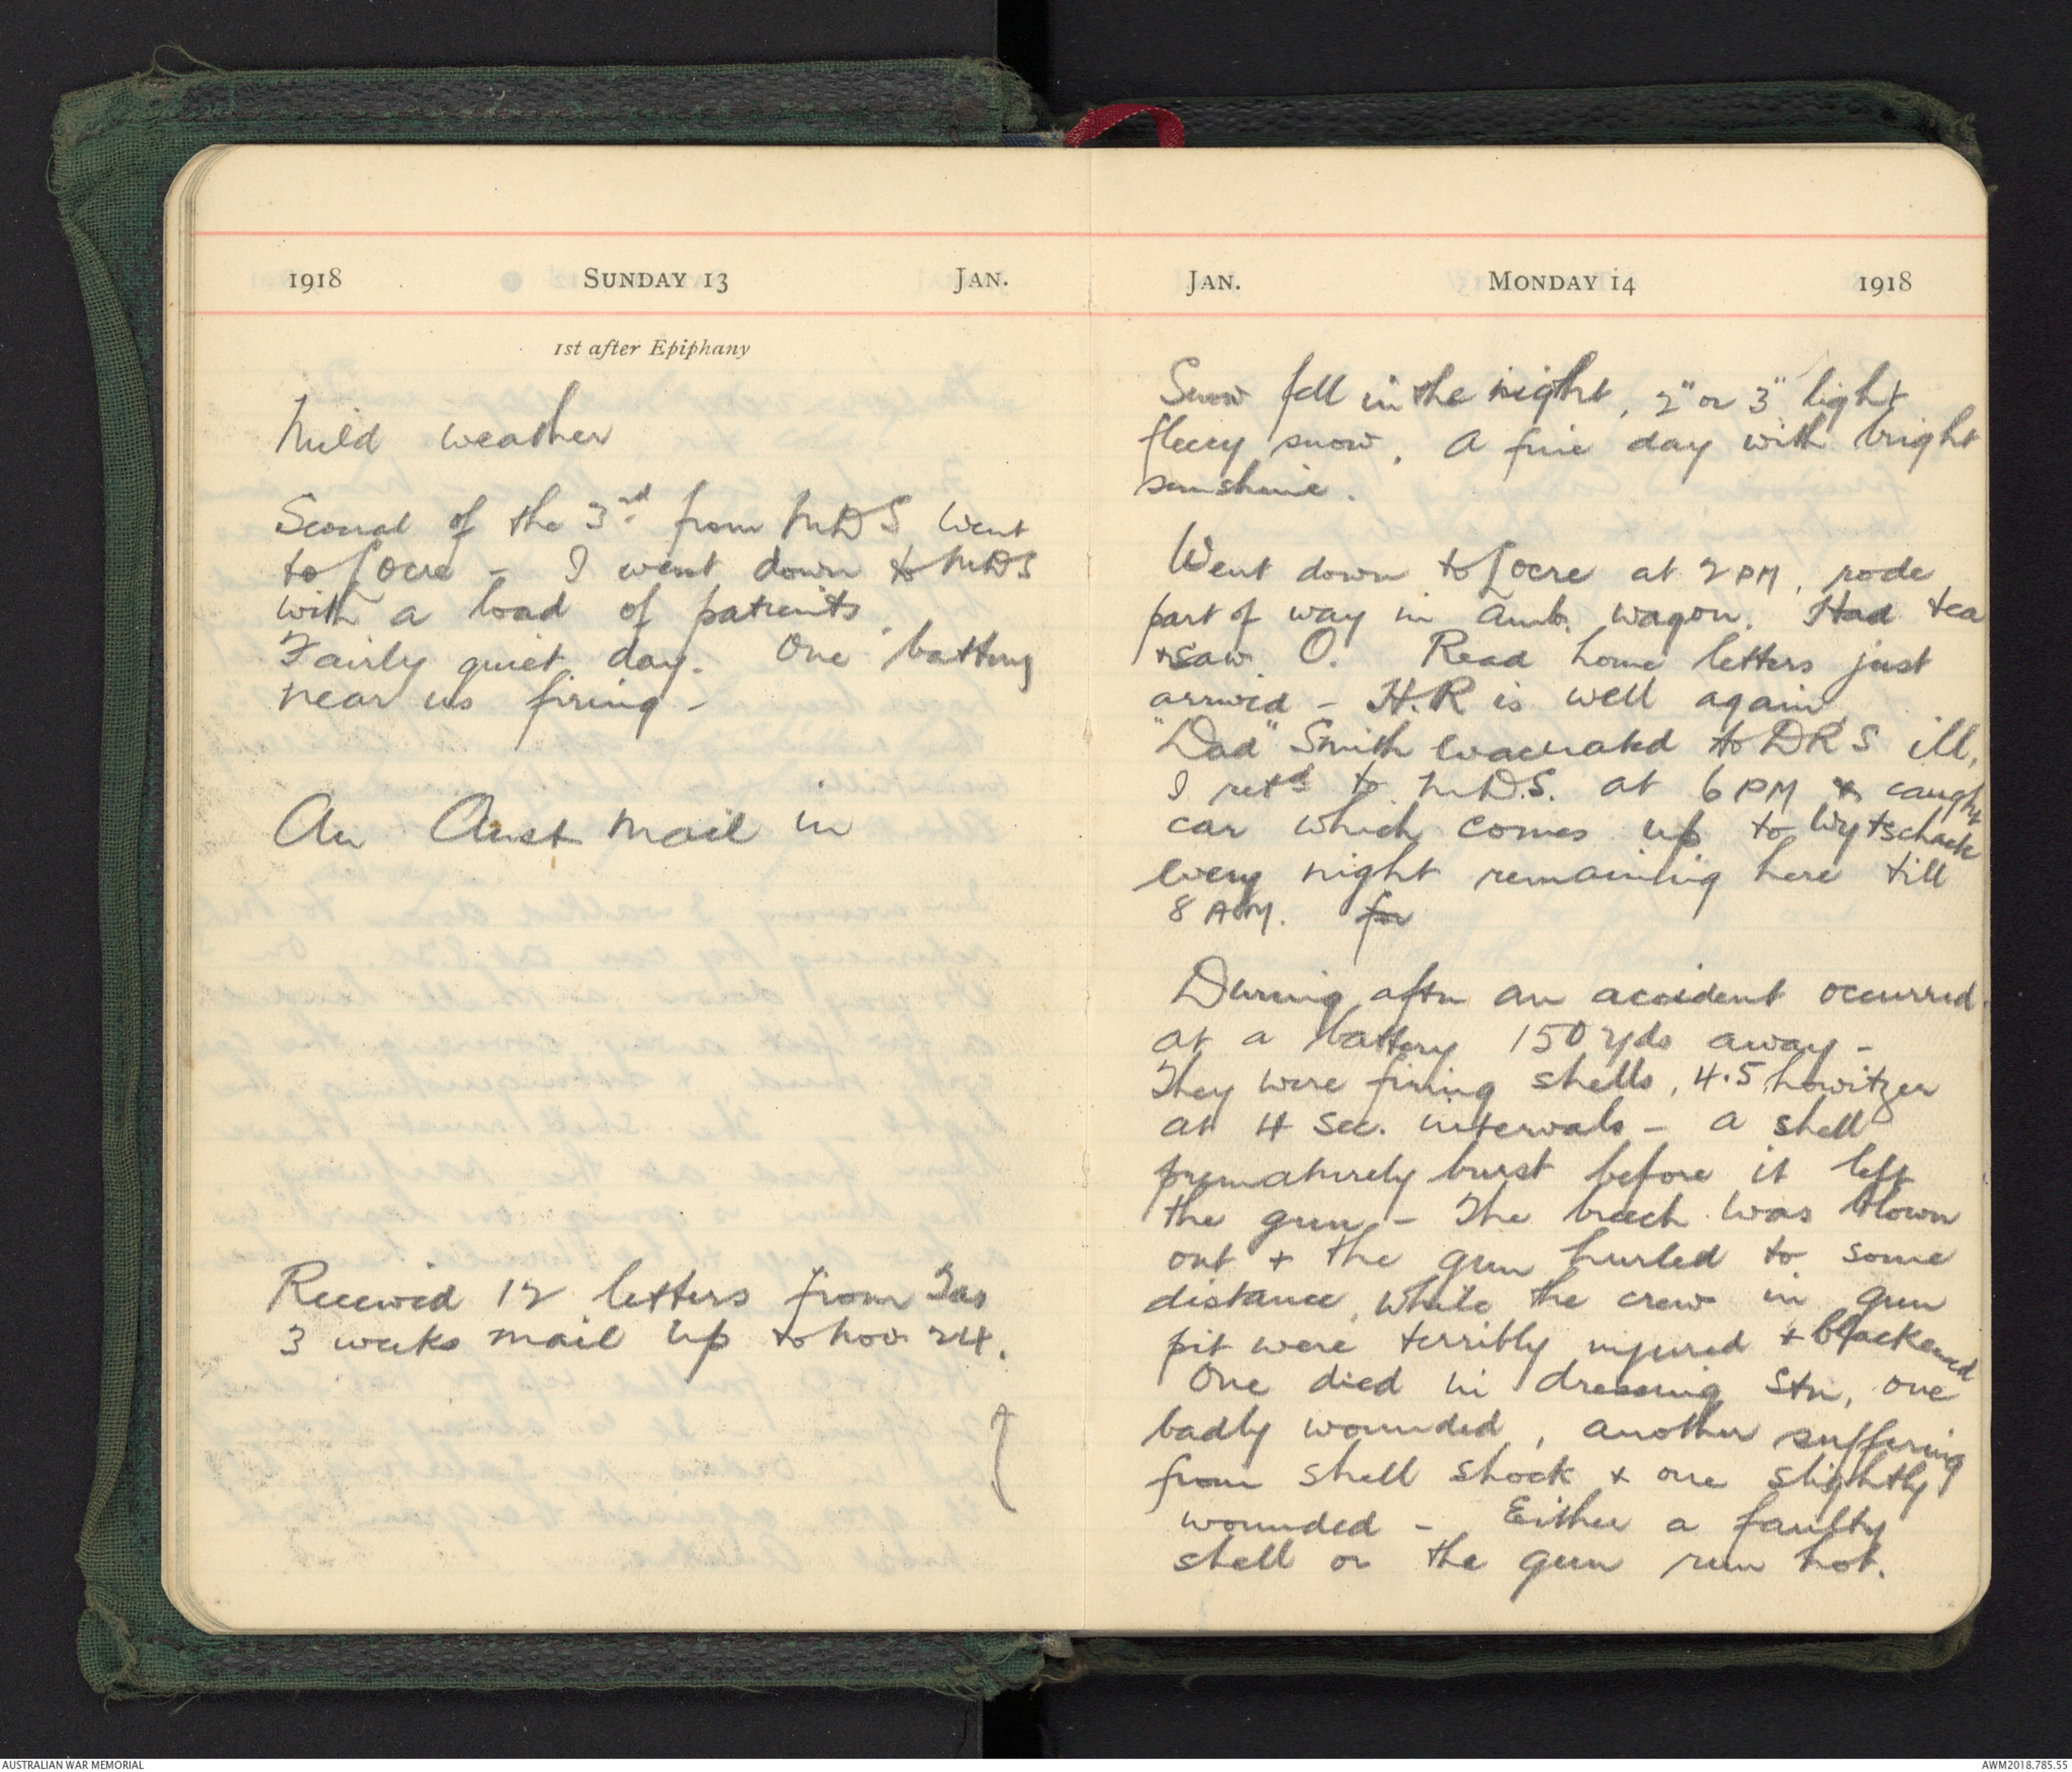 1918 SUNDAY 13 JAN.
1st after Epiphany
Mild weather
Several of the 3rd from MDS went
to Locre - I went down to MDS
with a load of patients.
Fairly quiet day. One battery
near us firing -
An Aust mail in
Received 12 letters from Tas
3 weeks mail up to Nov 24.
JAN. MONDAY 14 1918
Snow fell in the night, 2" or 3" light
fleecy snow. A fine day with bright
sunshine.
Went down to Locre at 2 PM, rode
part of way in Amb. wagon. Had tea
+ saw O. Read home letters just
arrived - H.R is well again
"Dad" Smith evacuated to DRS ill,
I retd to M.D.S. at 6 PM & caught
car which comes up to Wytschaete
every night remaining here till
8 AM. for
During aftn an accident occurred
at a battery 150 yds away -
They were firing shells, 4.5 howitzer
at 4 sec. intervals - A shell
prematurely burst before it left
the gun - The breech was blown
out + the gun hurled to some
distance, while the crew in gun
pit were terribly injured + blackened
One died in dressing Stn, one
badly wounded, another suffering
from shell shock + one slightly
wounded - Either a faulty
shell or the gun run hot.
AUSTRALIAN WAR MEMORIAL AWM2018.785.55